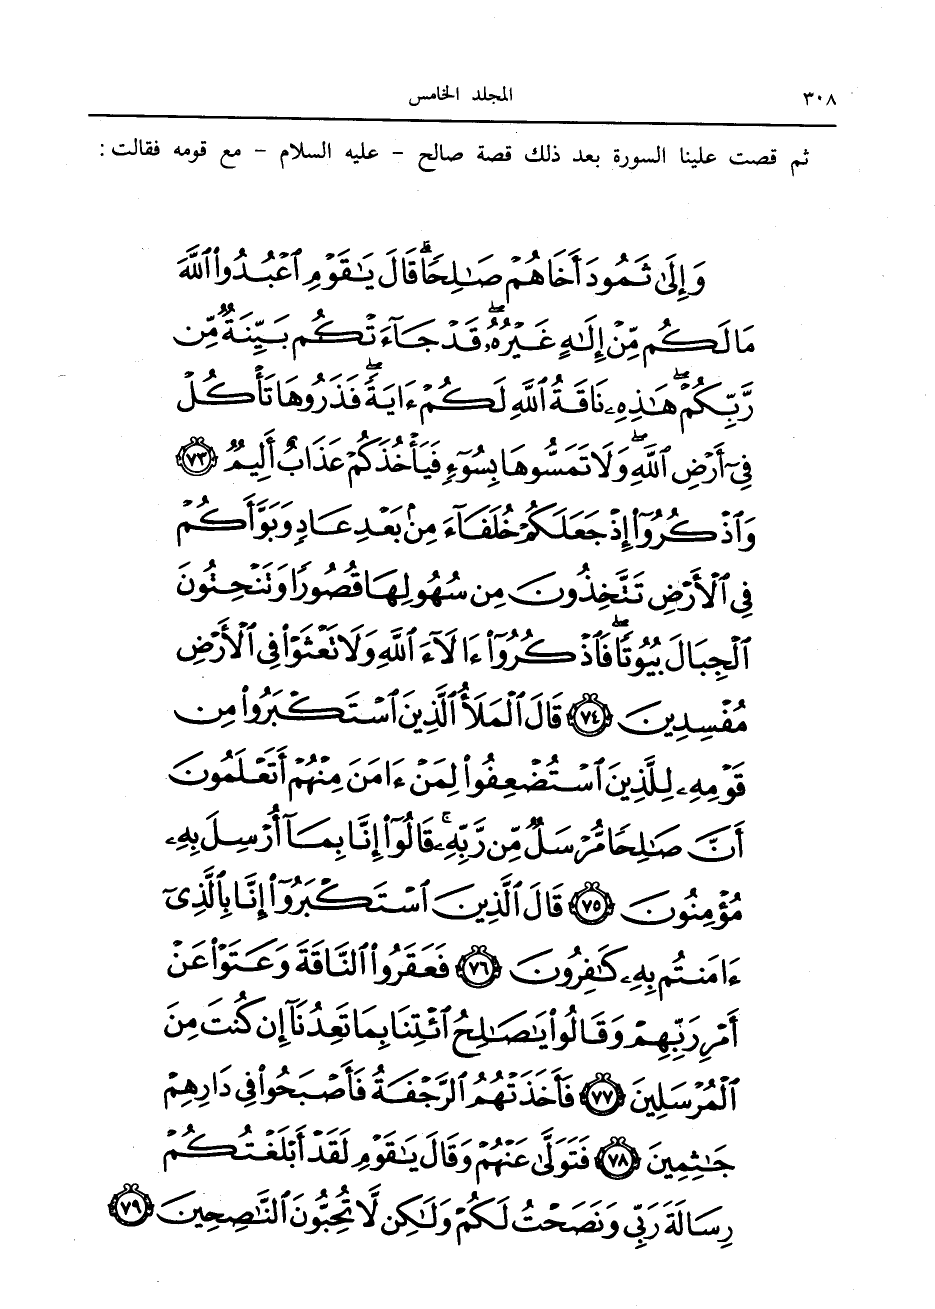 ٣٠٨ المجلد الخامس
ثم قصت علينا السورة بعد ذلك قصة صالح – عليه السلام – مع قومه فقالت :
وَإِلَىٰ ثَمُودَ أَخَاهُمْ صَٰلِحًاۗ قَالَ يَٰقَوْمِ ٱعْبُدُوا۟ ٱللَّهَ
مَا لَكُم مِّنْ إِلَٰهٍ غَيْرُهُۥۖ قَدْ جَآءَتْكُم بَيِّنَةٌ مِّن
رَّبِّكُمْۖ هَٰذِهِۦ نَاقَةُ ٱللَّهِ لَكُمْ ءَايَةًۖ فَذَرُوهَا تَأْكُلْ
فِىٓ أَرْضِ ٱللَّهِۖ وَلَا تَمَسُّوهَا بِسُوٓءٍ فَيَأْخُذَكُمْ عَذَابٌ أَلِيمٌ ٧٣
وَٱذْكُرُوٓا۟ إِذْ جَعَلَكُمْ خُلَفَآءَ مِنۢ بَعْدِ عَادٍ وَبَوَّأَكُمْ
فِى ٱلْأَرْضِ تَتَّخِذُونَ مِن سُهُولِهَا قُصُورًا وَتَنْحِتُونَ
ٱلْجِبَالَ بُيُوتًاۖ فَٱذْكُرُوٓا۟ ءَالَآءَ ٱللَّهِ وَلَا تَعْثَوْا۟ فِى ٱلْأَرْضِ
مُفْسِدِينَ ٧٤ قَالَ ٱلْمَلَأُ ٱلَّذِينَ ٱسْتَكْبَرُوا۟ مِن
قَوْمِهِۦ لِلَّذِينَ ٱسْتُضْعِفُوا۟ لِمَنْ ءَامَنَ مِنْهُمْ أَتَعْلَمُونَ
أَنَّ صَٰلِحًا مُّرْسَلٌ مِّن رَّبِّهِۦۚ قَالُوٓا۟ إِنَّا بِمَآ أُرْسِلَ بِهِۦ
مُؤْمِنُونَ ٧٥ قَالَ ٱلَّذِينَ ٱسْتَكْبَرُوٓا۟ إِنَّا بِٱلَّذِىٓ
ءَامَنتُم بِهِۦ كَٰفِرُونَ ٧٦ فَعَقَرُوا۟ ٱلنَّاقَةَ وَعَتَوْا۟ عَنْ
أَمْرِ رَبِّهِمْ وَقَالُوا۟ يَٰصَٰلِحُ ٱئْتِنَا بِمَا تَعِدُنَآ إِن كُنتَ مِنَ
ٱلْمُرْسَلِينَ ٧٧ فَأَخَذَتْهُمُ ٱلرَّجْفَةُ فَأَصْبَحُوا۟ فِى دَارِهِمْ
جَٰثِمِينَ ٧٨ فَتَوَلَّىٰ عَنْهُمْ وَقَالَ يَٰقَوْمِ لَقَدْ أَبْلَغْتُكُمْ
رِسَالَةَ رَبِّى وَنَصَحْتُ لَكُمْ وَلَٰكِن لَّا تُحِبُّونَ ٱلنَّٰصِحِينَ ٧٩